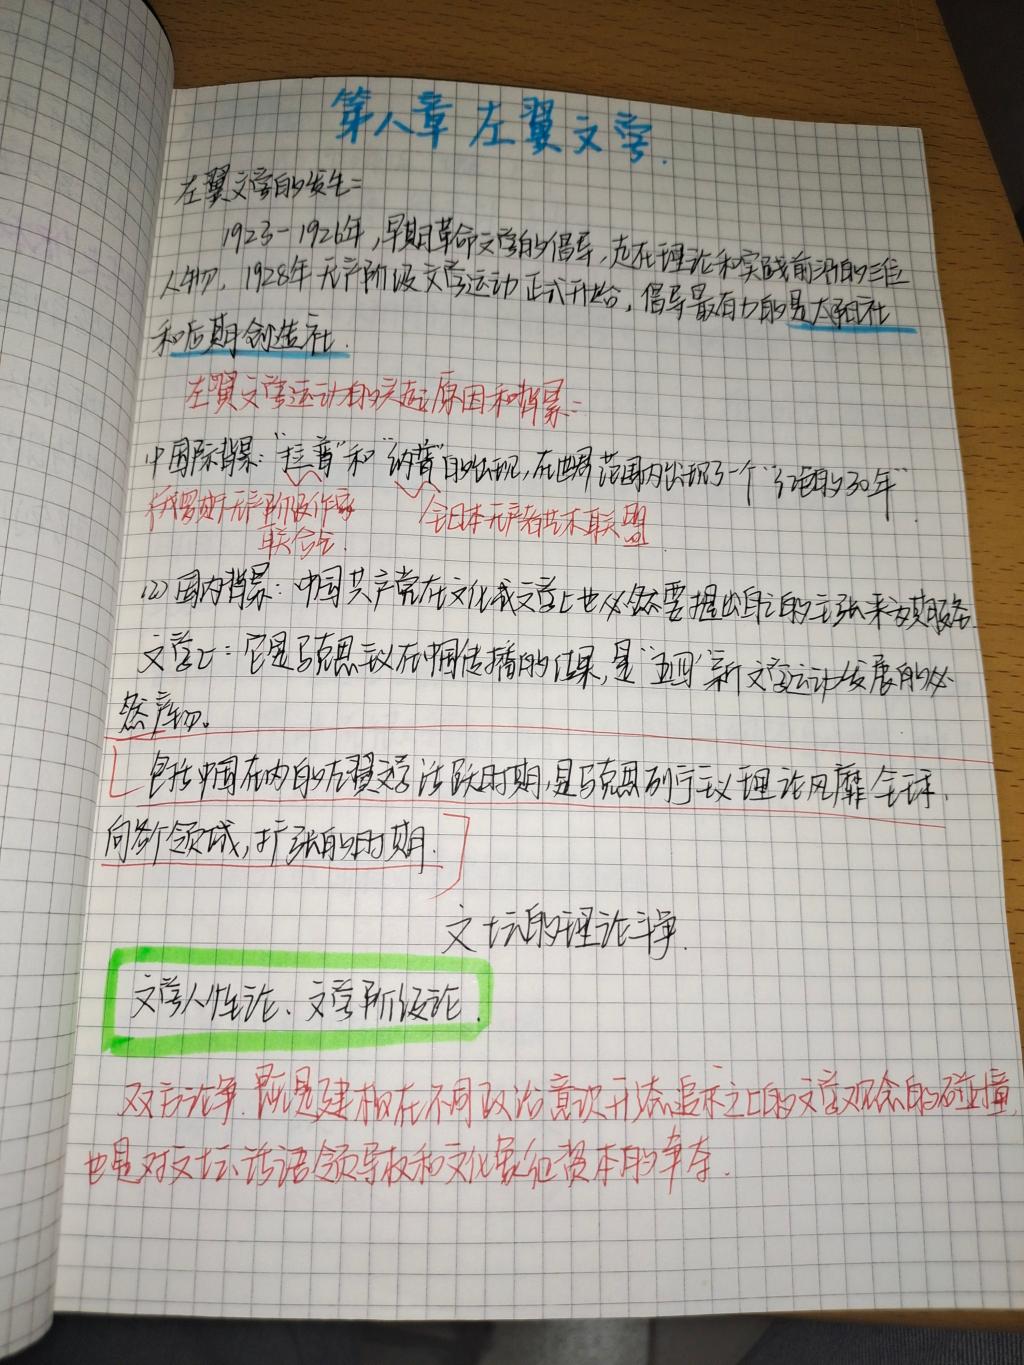 第八章 左翼文学.
左翼文学的发生：
1923-1926年,早期革命文学的倡导,走在理论和实践前沿的三位
人物. 1928年无产阶级文学运动正式开始,倡导最有力的是太阳社
和后期创造社.
左翼文学运动的兴起原因和背景：
(1)国际背景："拉普"和"纳普"的出现,在世界范围内出现了一个"红色的30年"
俄罗斯无产阶级作家 全日本无产者艺术联盟
联合会.
(2)国内背景：中国共产党在文化或文学上也必然要提出自己的主张来为其服务.
文学上：它是马克思主义在中国传播的结果,是"五四"新文学运动发展的必
然产物。
包括中国在内的左翼文学活跃时期,是马克思列宁主义理论风靡全球,
向各个领域,扩张的时期.
文坛的理论斗争.
文学人性论、文学阶级论.
双方论争,既是建构在不同政治意识形态追求之上的文学观念的碰撞,
也是对文坛话语领导权和文化象征资本的争夺.